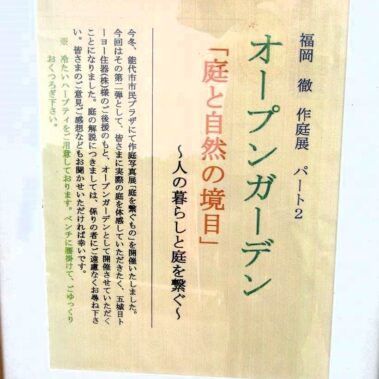 福岡 徹 作庭展 パート2
オープンガーデン
「庭と自然の境目」
～人の暮らしと庭を繋ぐ～
今冬、能代市市民プラザにて作庭写真展「庭を繋ぐもの」を開催いたしました。
今回はその第二弾として、皆さまに実際の庭を体感していただきたく、五城目ト
ーヨー住器(株)様のご後援のもと、オープンガーデンとして開催させていただく
ことになりました。庭の解説につきましては、係りの者にご遠慮なくお尋ね下さ
い。皆さまのご意見ご感想などもお聞かせいただければ幸いです。
※ 冷たいハーブティをご用意しております。ベンチに腰掛けて、ごゆっくり
おくつろぎ下さい。